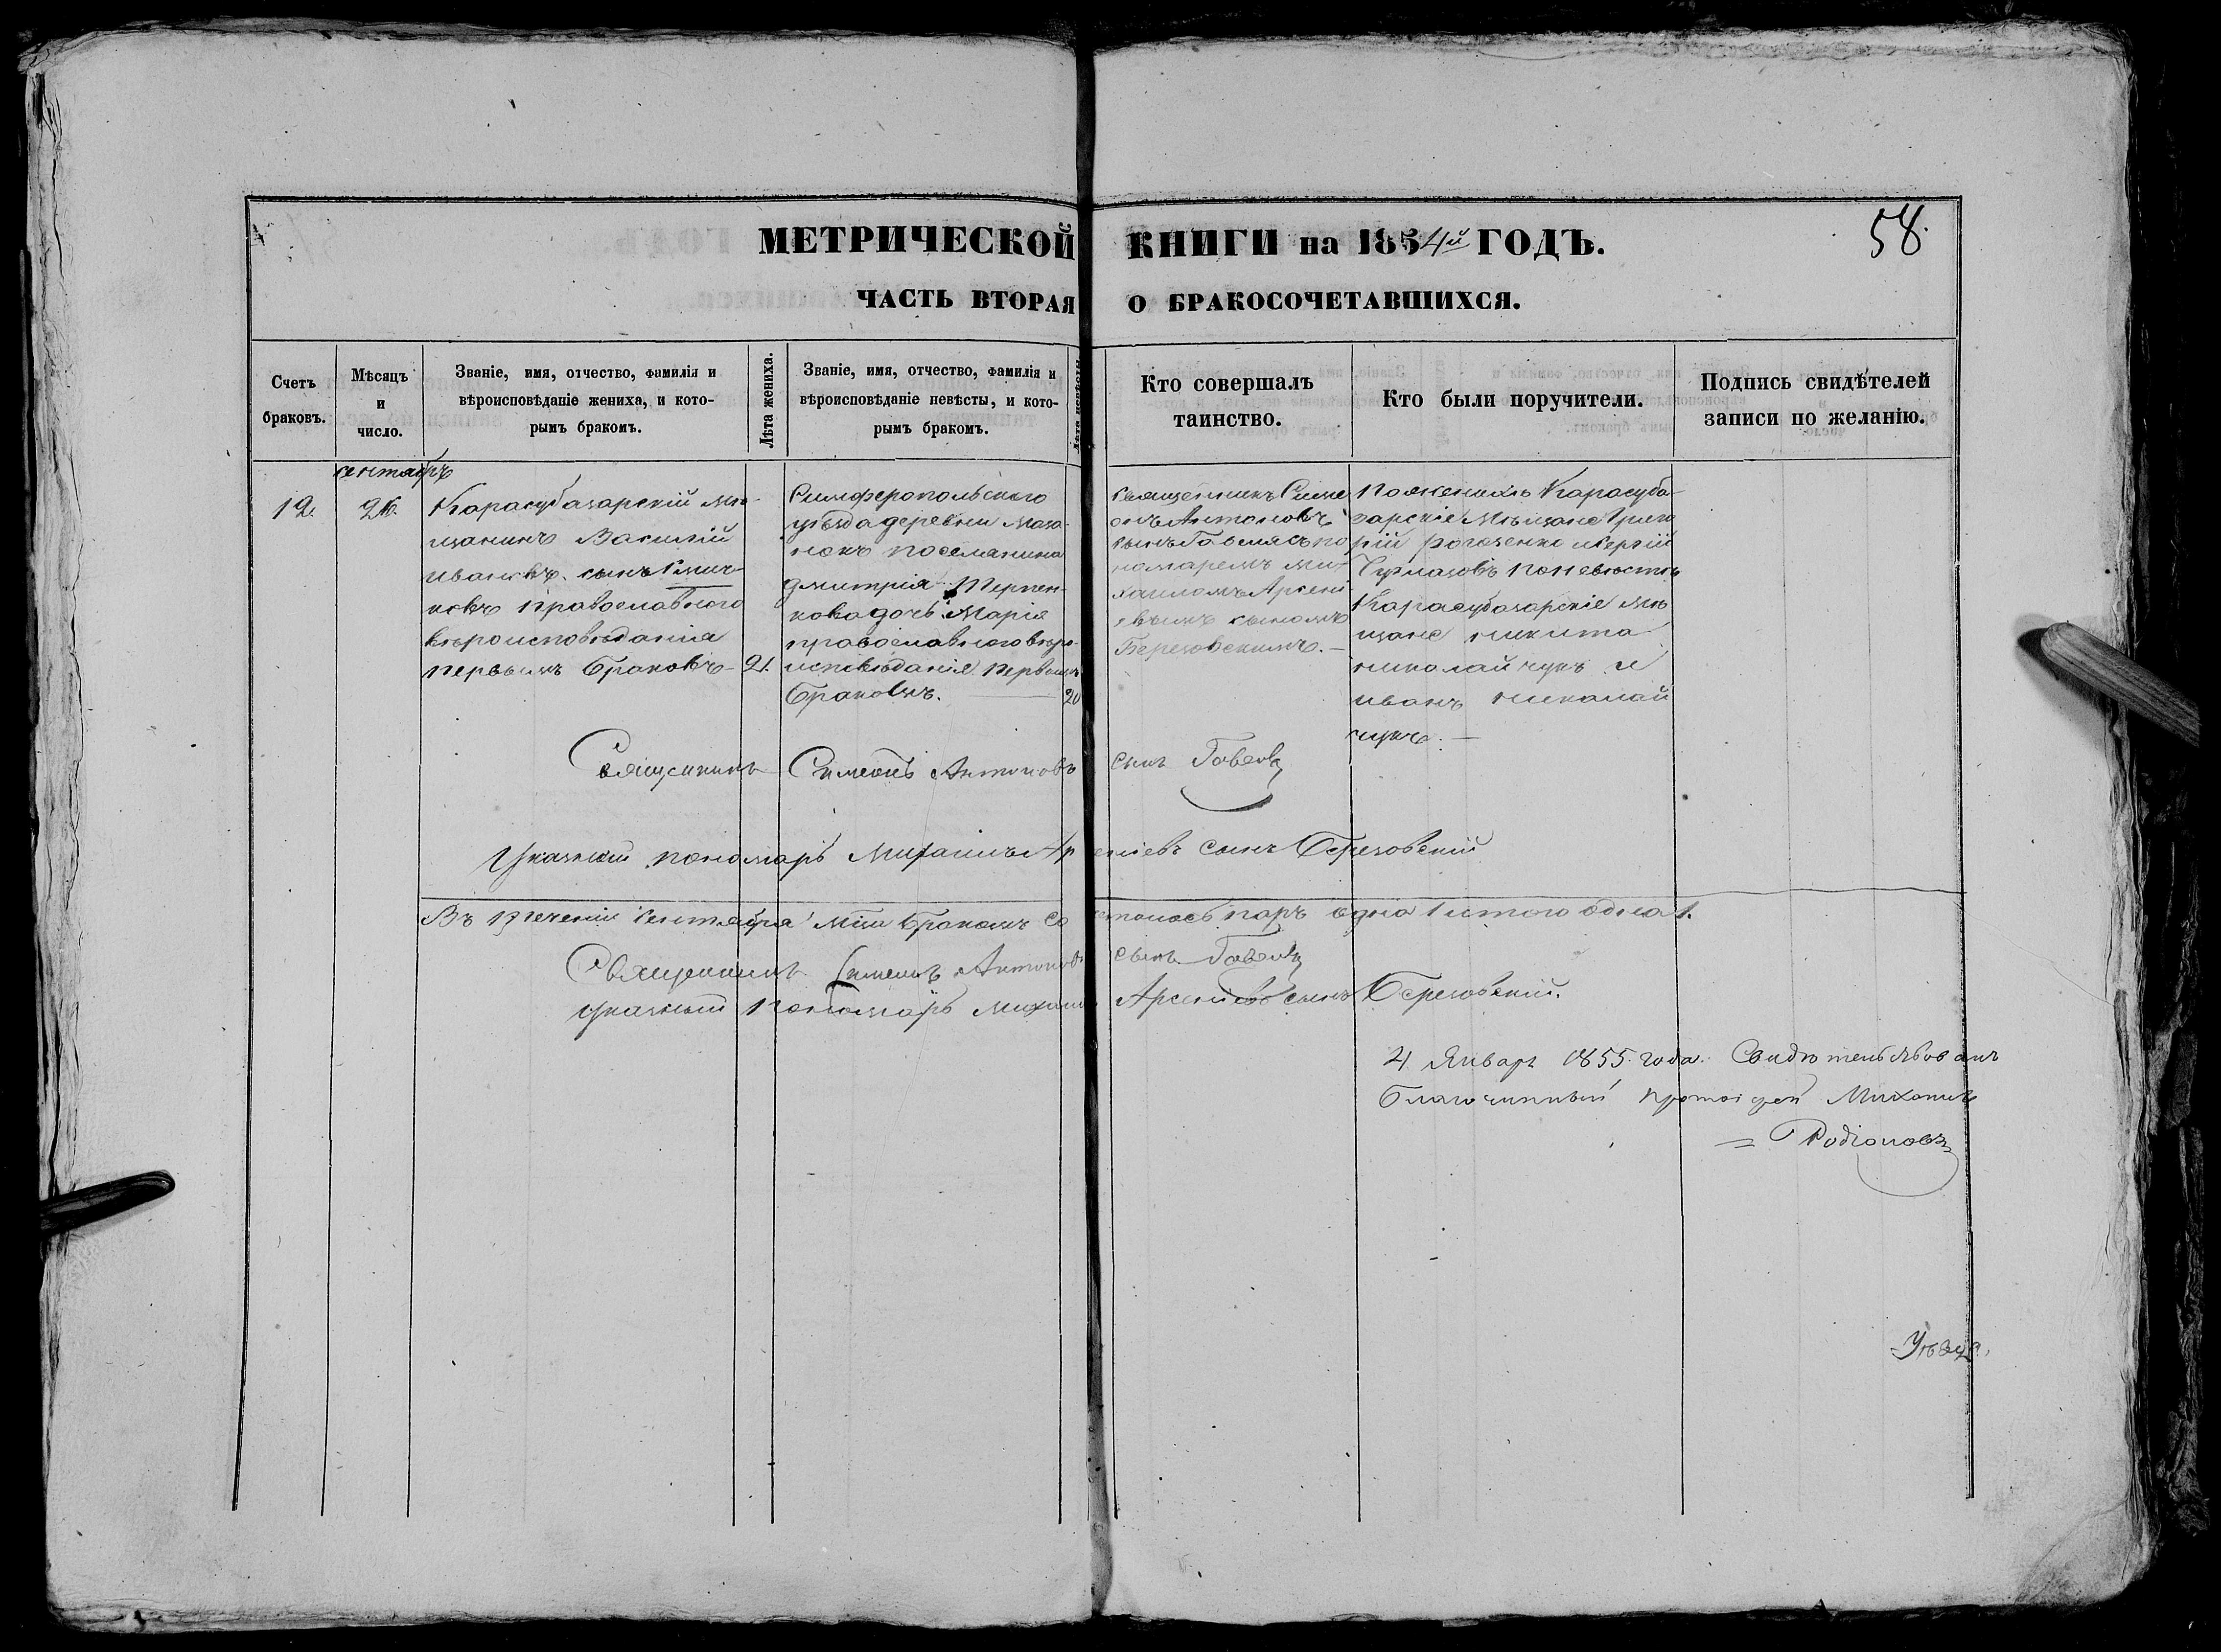 МЕТРИЧЕСКОЙ КНИГИ на 1854й ГОДЪ.
58.
ЧАСТЬ ВТОРАЯ О БРАКОСОЧЕТАВШИХСЯ.
Счетъ
браковъ.
Мѣсяцъ
и
число.
Званіе, имя, отчество, фамилія и
вѣроисповѣданіе жениха, и кото-
рымъ бракомъ.
Лѣта жениха.
Званіе, имя, отчество, фамилія и
вѣроисповѣданіе невѣсты, и кото-
рымъ бракомъ.
Лѣта невѣсты.
Кто совершалъ
таинство.
Кто были поручители.
Подпись свидѣтелей
записи по желанію.
сентябрь
12.
26.
Карасубазарскій мѣ-
щанинъ Василій
Ивановъ сынъ
православного
вѣроисповѣданія
первымъ бракомъ
21.
Симферопольскаго
уѣзда деревни Маза-
нокъ поселянина
Дмитрія
дочь Марія
православного вѣро-
исповѣданія первымъ
бракомъ.
20
священникъ Симе
онъ Антоновъ
сынъ по
номаремъ Ми-
хаиломъ Арсені
евымъ сыномъ
Березовскимъ.
По женихѣ Карасуба-
зарскіе мѣщане Григо
рій и Сергій
по невѣстѣ
Карасубазарскіе мѣ
щане Никита
Николайчукъ и
Иванъ Николай
чукъ.
Священникъ Симеонъ Антоновъ сынъ
Указный пономарь Михаилъ Арсеніевъ сынъ Березовскій
Въ теченіи сентября мца бракомъ сочеталось паръ одна 1 итого одна 1.
Священникъ Симеонъ Антоновъ сынъ
Указный пономарь Михаилъ Арсеніевъ сынъ Березовскій.
4 Январь 1855 года. Свидѣтельствовалъ
Благочинный протоіерей Михаилъ
Родіоновъ